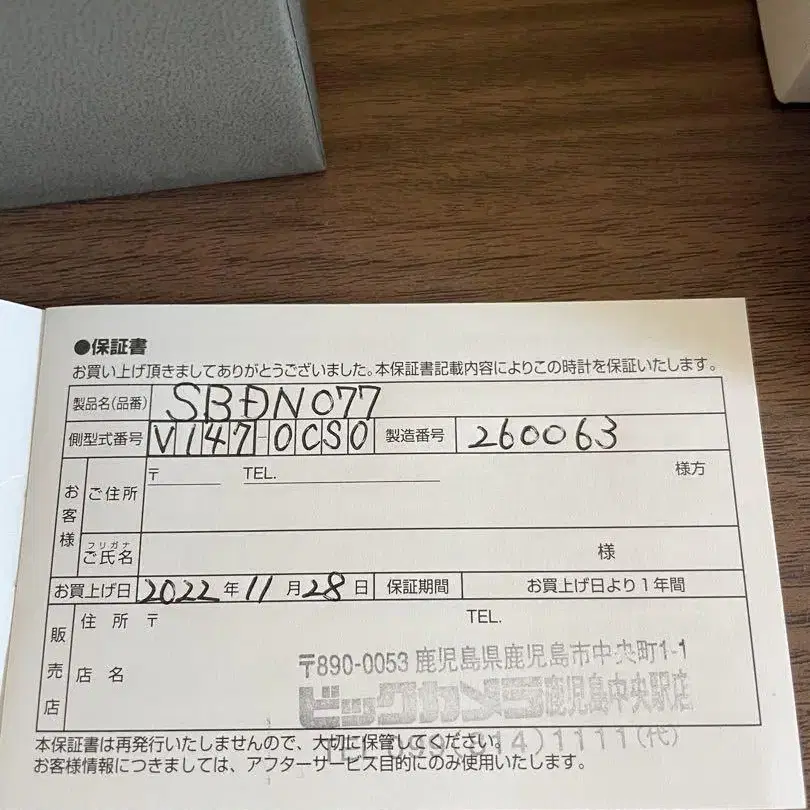 ●保証書
お買い上げ頂きましてありがとうございました。本保証書記載内容によりこの時計を保証いたします。
製品名(品番) SBDN077
側型式番号 V147-0CS0 製造番号 260063
お客様 ご住所 〒 TEL. 様方
フリガナ
ご氏名 様
お買上げ日 2022年11月28日 保証期間 お買上げ日より1年間
販売店 住所 〒 TEL.
〒890-0053 鹿児島県鹿児島市中央町1-1
店名 ビックカメラ鹿児島中央駅店
TEL 099(814)1111(代)
本保証書は再発行いたしませんので、大切に保管してください。
お客様情報につきましては、アフターサービス目的にのみ使用いたします。